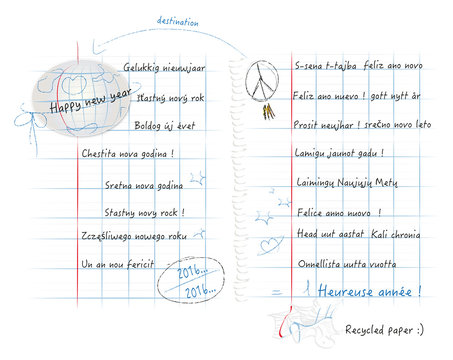 destination
Gelukkig nieuwjaar
Happy new year
Šťastný nový rok
Boldog új évet
Chestita nova godina !
Sretna nova godina
Stastny novy rock !
Zczęśliwego nowego roku
Un an nou fericit
2016...
2016...
S-sena t-tajba feliz ano novo
Feliz ano nuevo ! gott nytt àr
Prosit neujhar ! srečno novo leto
Lamigu jaunot gadu !
Laimingų Naujųjų Metų
Felice anno nuovo !
Head uut aastat Kali chronia
Onnellista uutta vuotta
= 1 Heureuse année !
Recycled paper :)